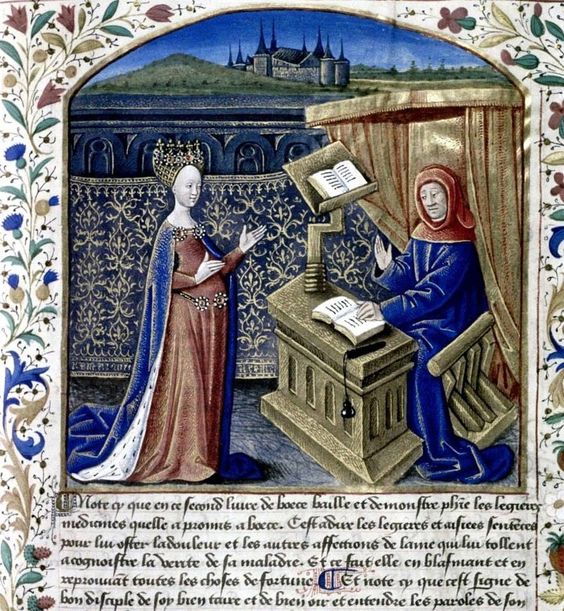 Note cy que en ce second liure de boece baille et demonstre phie les legiers
medicines quelle a promis a boece. Cest adire les legieres et aisees sentẽces
pour lui oster la douleur et les autres affections de lame qui lui tollent
a cognoistre la verite de sa maladie. Et ce fait elle en blasmant et en
reprouuant toutes les choses de fortune. Et note cy que cest signe de
bon disciple de soy bien taire et de bien oir et entendre les paroles de son